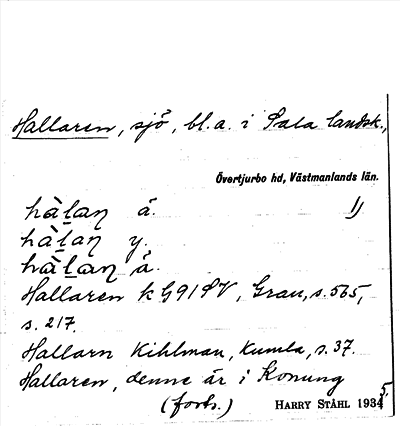 Hallaren, sjö, bl.a. i Sala landsk.,
Övertjurbo hd, Västmanlands län.
hàlaɳ å. 1)
hàlaɳ y.
hàlaɳ å.
Hallaren k G91SV, Grau, s. 565,
s. 217.
Hallarn Kihlman, Kumla, s. 37.
Hallaren, denne är i Konung
(forts.) HARRY STÅHL 1934
5.